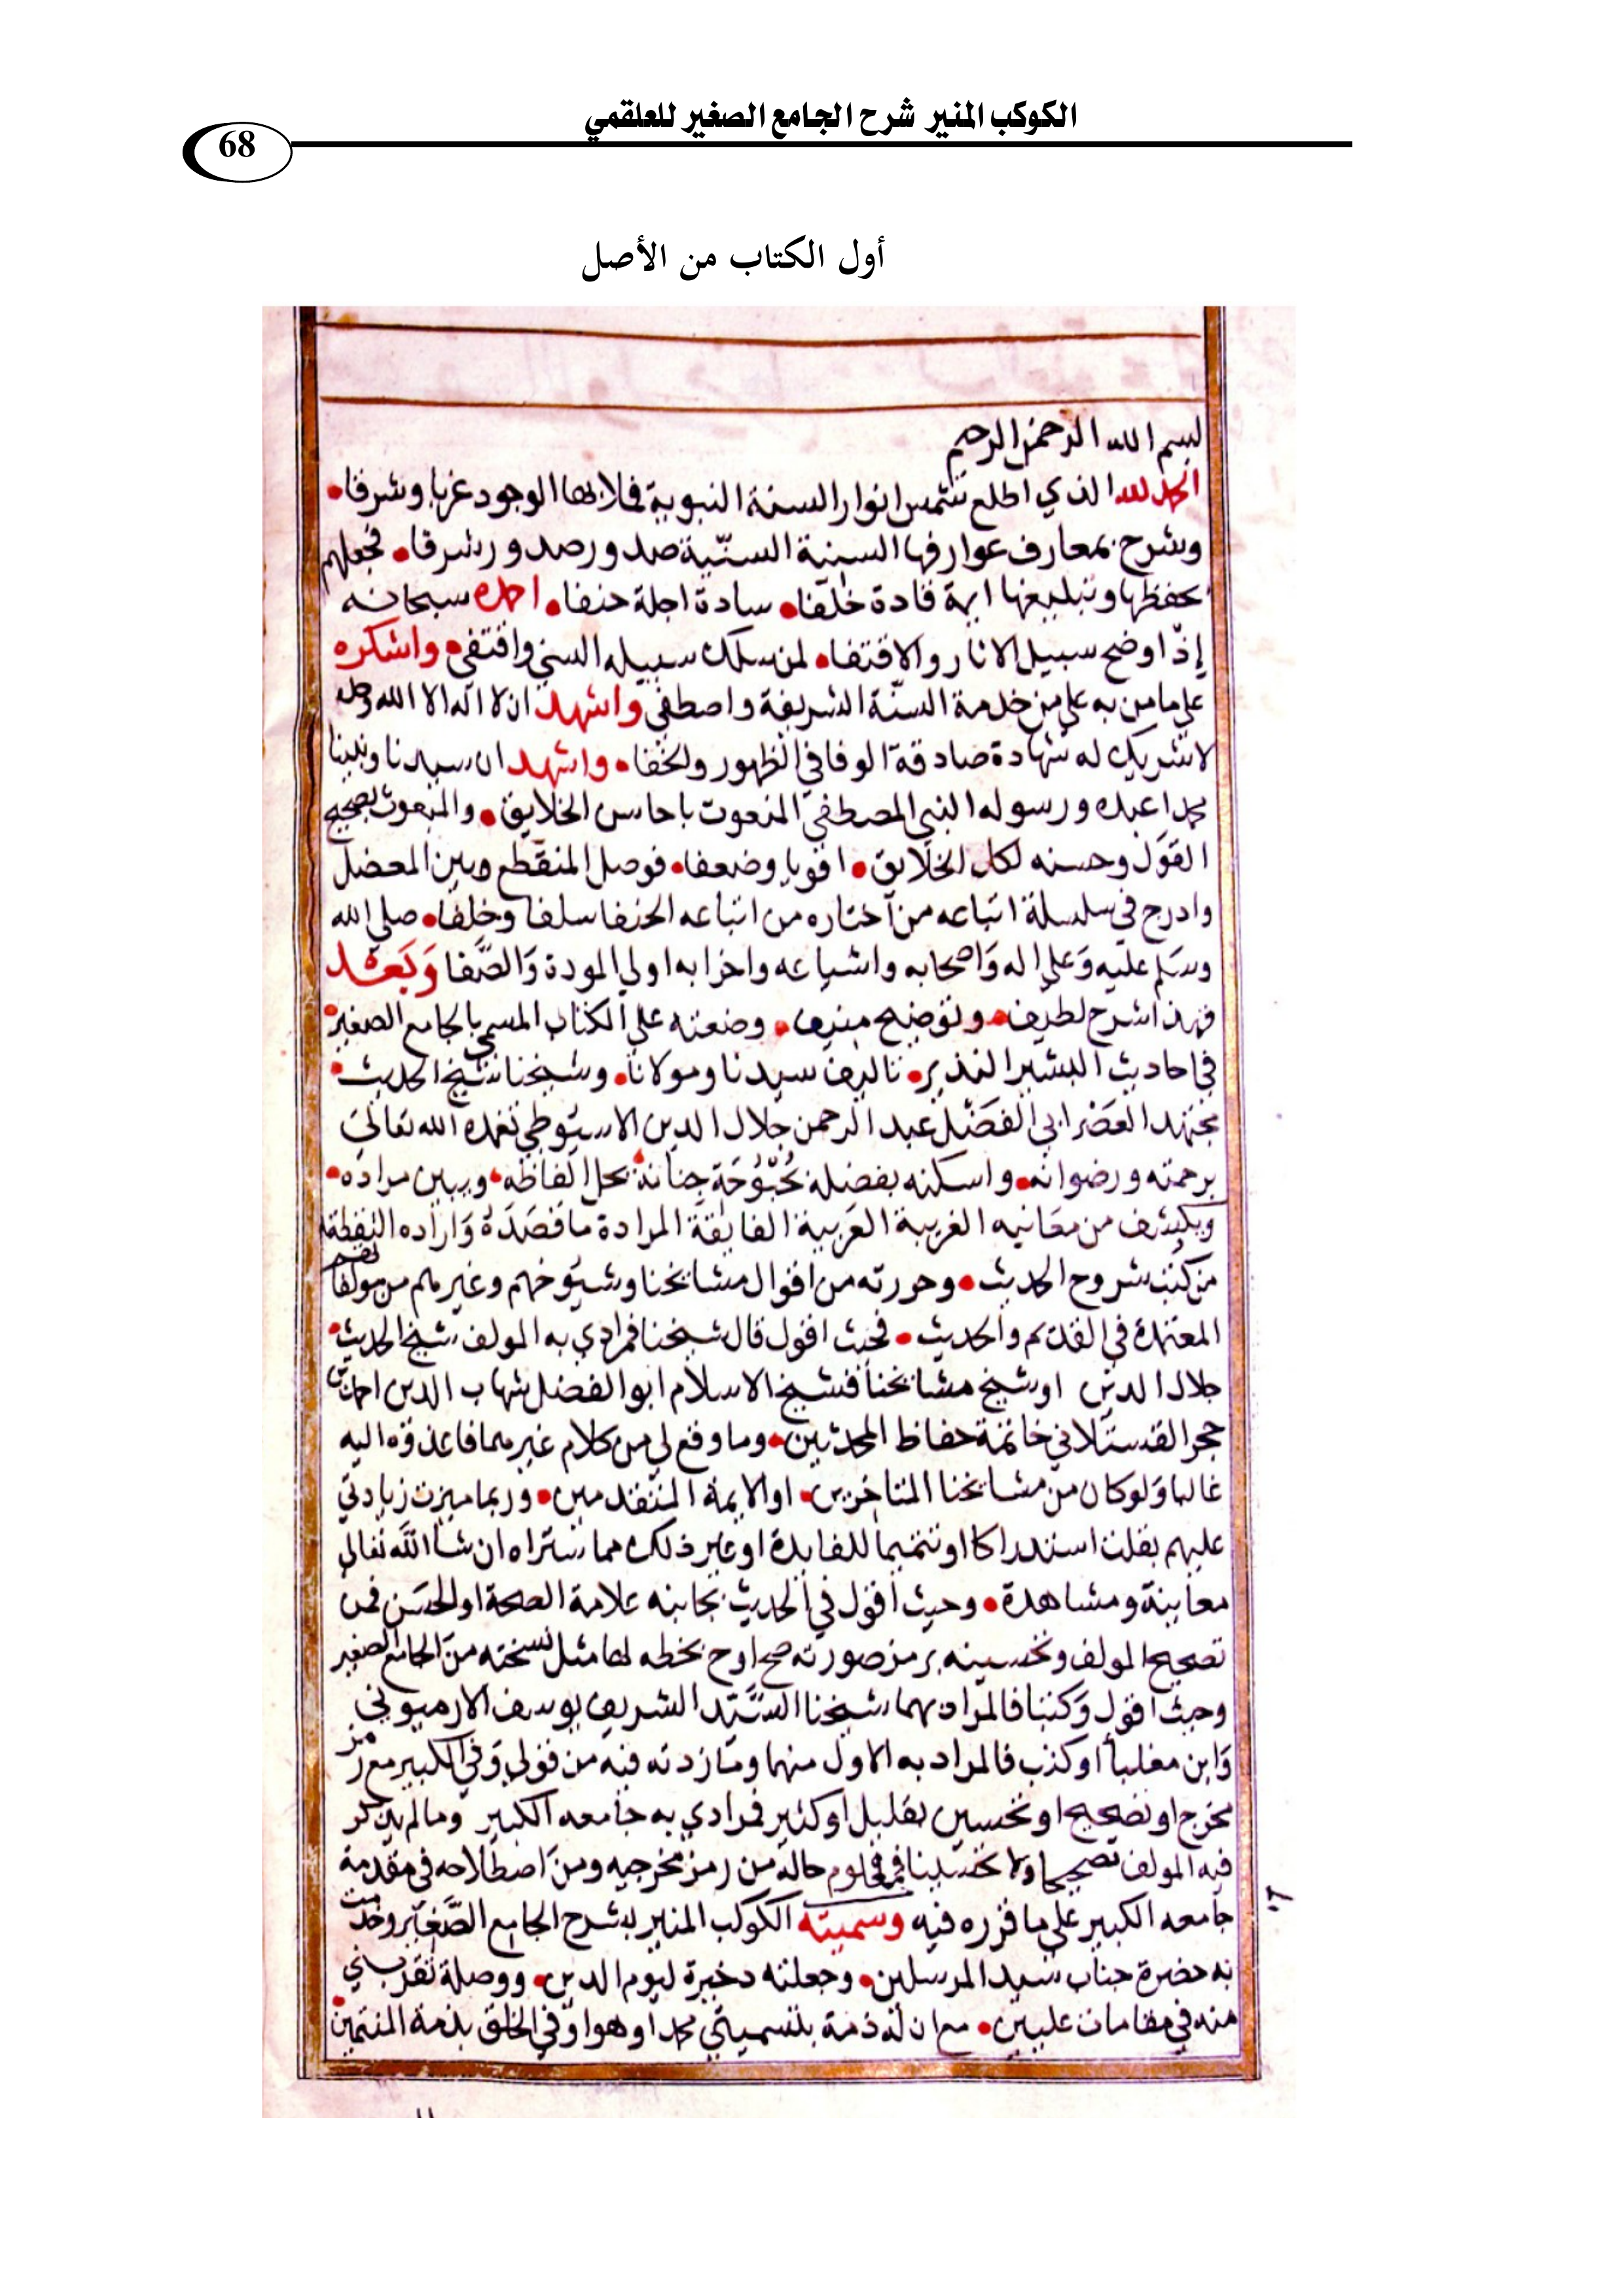 الكوكب المنير شرح الجامع الصغير للعلقمي
68
أول الكتاب من الأصل
لبسم الله الرحمن الرحيم
الحمد لله الذي اطلع شمس انوار السنة النبوية فملا بها الوجود غربا وشرقا
وشرح بمعارف عوارفها السنية السنّية صدور صدور شرفا فجعلهم
بحفظها وتبليغها ايمة قادة خلفا سادة اجلة حنفا احمده سبحانه
إذ اوضح سبيل الاثار والاقتفا لمن سلك سبيله السني واقتفى واشكره
على ما من به علي من خدمة السنّة الشريفة واصطفى واشهد ان لا اله الا الله وحده
لا شريك له شهادة صادقة الوفا في الظهور والخفا واشهد ان سيدنا ونبينا
محمدا عبده ورسوله النبي المصطفى المنعوت باحاسن الخلايق والمبعوث بصحيح
القول وحسنه لكل الخلايق اقويا وضعفا فوصل المنقطع وبين المعضل
وادرج في سلسلة اتباعه من اختاره من اتباعه الحنفا سلفا وخلفا صلى الله
وسلم عليه وَعلى اله وَاصحابه واشياعه واحزابه اولي المودة وَالصَّفا وَبَعْد
فهذا شرح لطيف وتوضيح منيف وضعته على الكتاب المسمى بالجامع الصغير
في احاديث البشير النذير تاليف سيدنا ومولانا وشيخنا شيخ الحديث
مجتهد العصر ابي الفضل عبد الرحمن جلال الدين الاسيوطي تغمده الله تعالى
برحمته ورضوانه واسكنه بفضله بُحْبُوحَة جِنانه يحل الفاظه ويبين مراده
ويكشف من معانيه الغريبة العَربية الفايقة المرادة ما قصَدَهُ وَاراده التقطته
من كتب شروح الحديث وحررته من اقوال مشايخنا وشيوخهم وغيرهم من مولفاتهم
المعتمدة في القديم والحديث فحيث اقول قال شيخنا فمرادي به المولف شيخ الحديث
جلال الدين او شيخ مشايخنا فشيخ الاسلام ابو الفضل شهاب الدين احمد بن
حجر العسقلاني خاتمة حفاظ المحدثين وما وقع لي من كلام غيرهما فاعزوه اليه
غالبا وَلو كان من مشايخنا المتاخرين او الايمة المتقدمين وربما ميزت زيادتي
عليهم بقلت استدراكا او تتميما للفايدة او غير ذلك مما ستراه ان شا الله تعالى
معاينة ومشاهدة وحيث اقول في الحديث بجانبه علامة الصحة او الحسَن فمن
تصحيح المولف وتحسينه برمز صورته صح او ح بخطه لها مثل نسخته من الجامع الصغير
وحيث اقول وَكتبا فالمراد بهما شيخنا السيد الشريف يوسف الارميوني
وَابن مغلباي او كتب فالمراد به الاول منهما وما زدته فيه من قولي وَفي الكبير مع رمز
مخرج او تصحيح او تحسين بقليل او كثير فمرادي به جامعه الكبير وما لم يذكر
فيه المولف تصحيحا ولا تحسينا فمعلوم حاله من رمز مخرجيه ومن اصطلاحه في مقدمة
جامعه الكبير على ما قرره فيه وسميته الكوكب المنير بشرح الجامع الصَّغير وخدمت
به حضرة جناب سيد المرسلين وجعلته ذخيرة ليوم الدين ووصلة تقربني
منه في مقامات عليين مع ان له ذمة بتسميتي محمدا وهو اوفى الخلق بذمة المنتمين